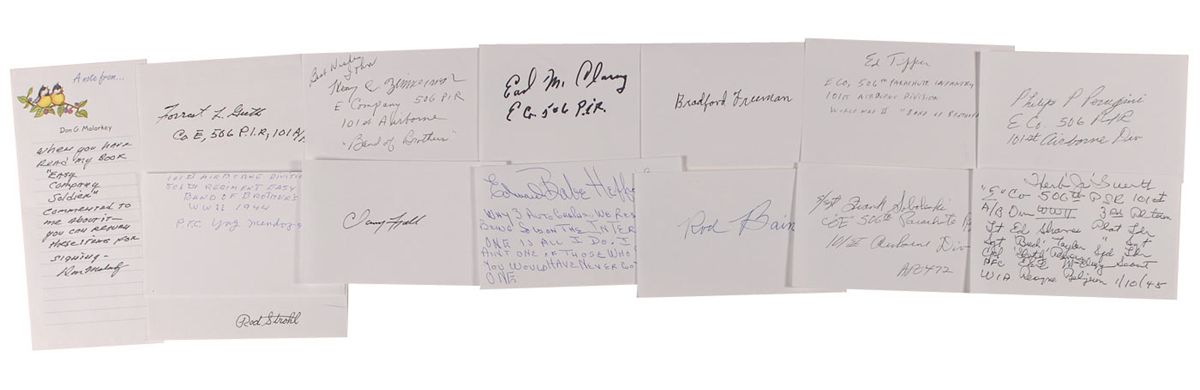 A note from...
Don G. Malarkey
WHEN YOU HAVE
READ MY BOOK
"EASY
COMPANY
SOLDIER"
COMMENTED TO
ME ABOUT IT—
YOU CAN RETURN
THESE ITEMS FOR
SIGNING—
Don Malarkey
Forrest L. Guth
Co E, 506 P.I.R, 101 A/
101ST AIRBORNE DIVISI
506TH REGIMENT EASY
BAND OF BROTHERS
WWII 1944
P.F.C.
Rod Strohl
Best Wishes
John
Henry C. Zimmerman
E Company 506 PIR
101st Airborne
"Band of Brothers"
Earl M.
E Co. 506 P.I.R.
Edward "Babe" Heffr
WHY 3 AUTOGRAPHS. WE RE
BEING SOLD ON THE INTER
ONE IS ALL I DO. I
AINT ONE OF THOSE WHO
YOU WOULD HAVE NEVER GOT
ONE
Bradford Freeman
Rod Bain
Ed Tipper
E CO, 506TH PARACHUTE INFANTRY
101ST AIRBORNE DIVISION
WORLD WAR II "BAND OF BROTHERS
S/Sgt Frank
CoE 506th Parachute
101st Airborne Div
Philip P Perugini
E Co 506 PIR
101st Airborne Div
Herb Jr Suerth
"E" Co 506th P.I.R 101st
A/B Div WWII 3rd Platoon
Lt Ed Shames Plat Ldr
Sgt "Bud" Taylor " Sgt
Sqd Ldr
PFC Scout
WIA Belgium 1/10/45